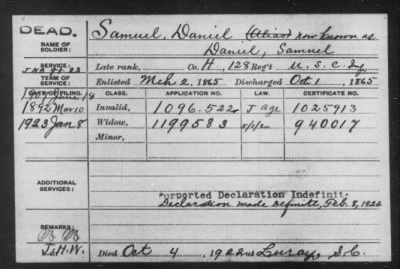 DEAD.
NAME OF SOLDIER: Samuel, Daniel (Alias) now known as
Daniel, Samuel
SERVICE: Late rank, Co. H, 128 Reg't U.S.C. Inf
Enlisted Mch 2, 1865 Discharged Oct 1, 1865
DATE OF FILING. CLASS. APPLICATION NO. LAW. CERTIFICATE NO.
1892 Mar 10 Invalid, 1096.522 J age 1025913
1923 Jan 8 Widow, 1199583 940017
Minor,
ADDITIONAL SERVICES:
Purported Declaration Indefinite
Declaration made Definite, Feb. 8, 1926
REMARKS:
J.H.W. Died Oct 4, 1922 at Luray, S.C.